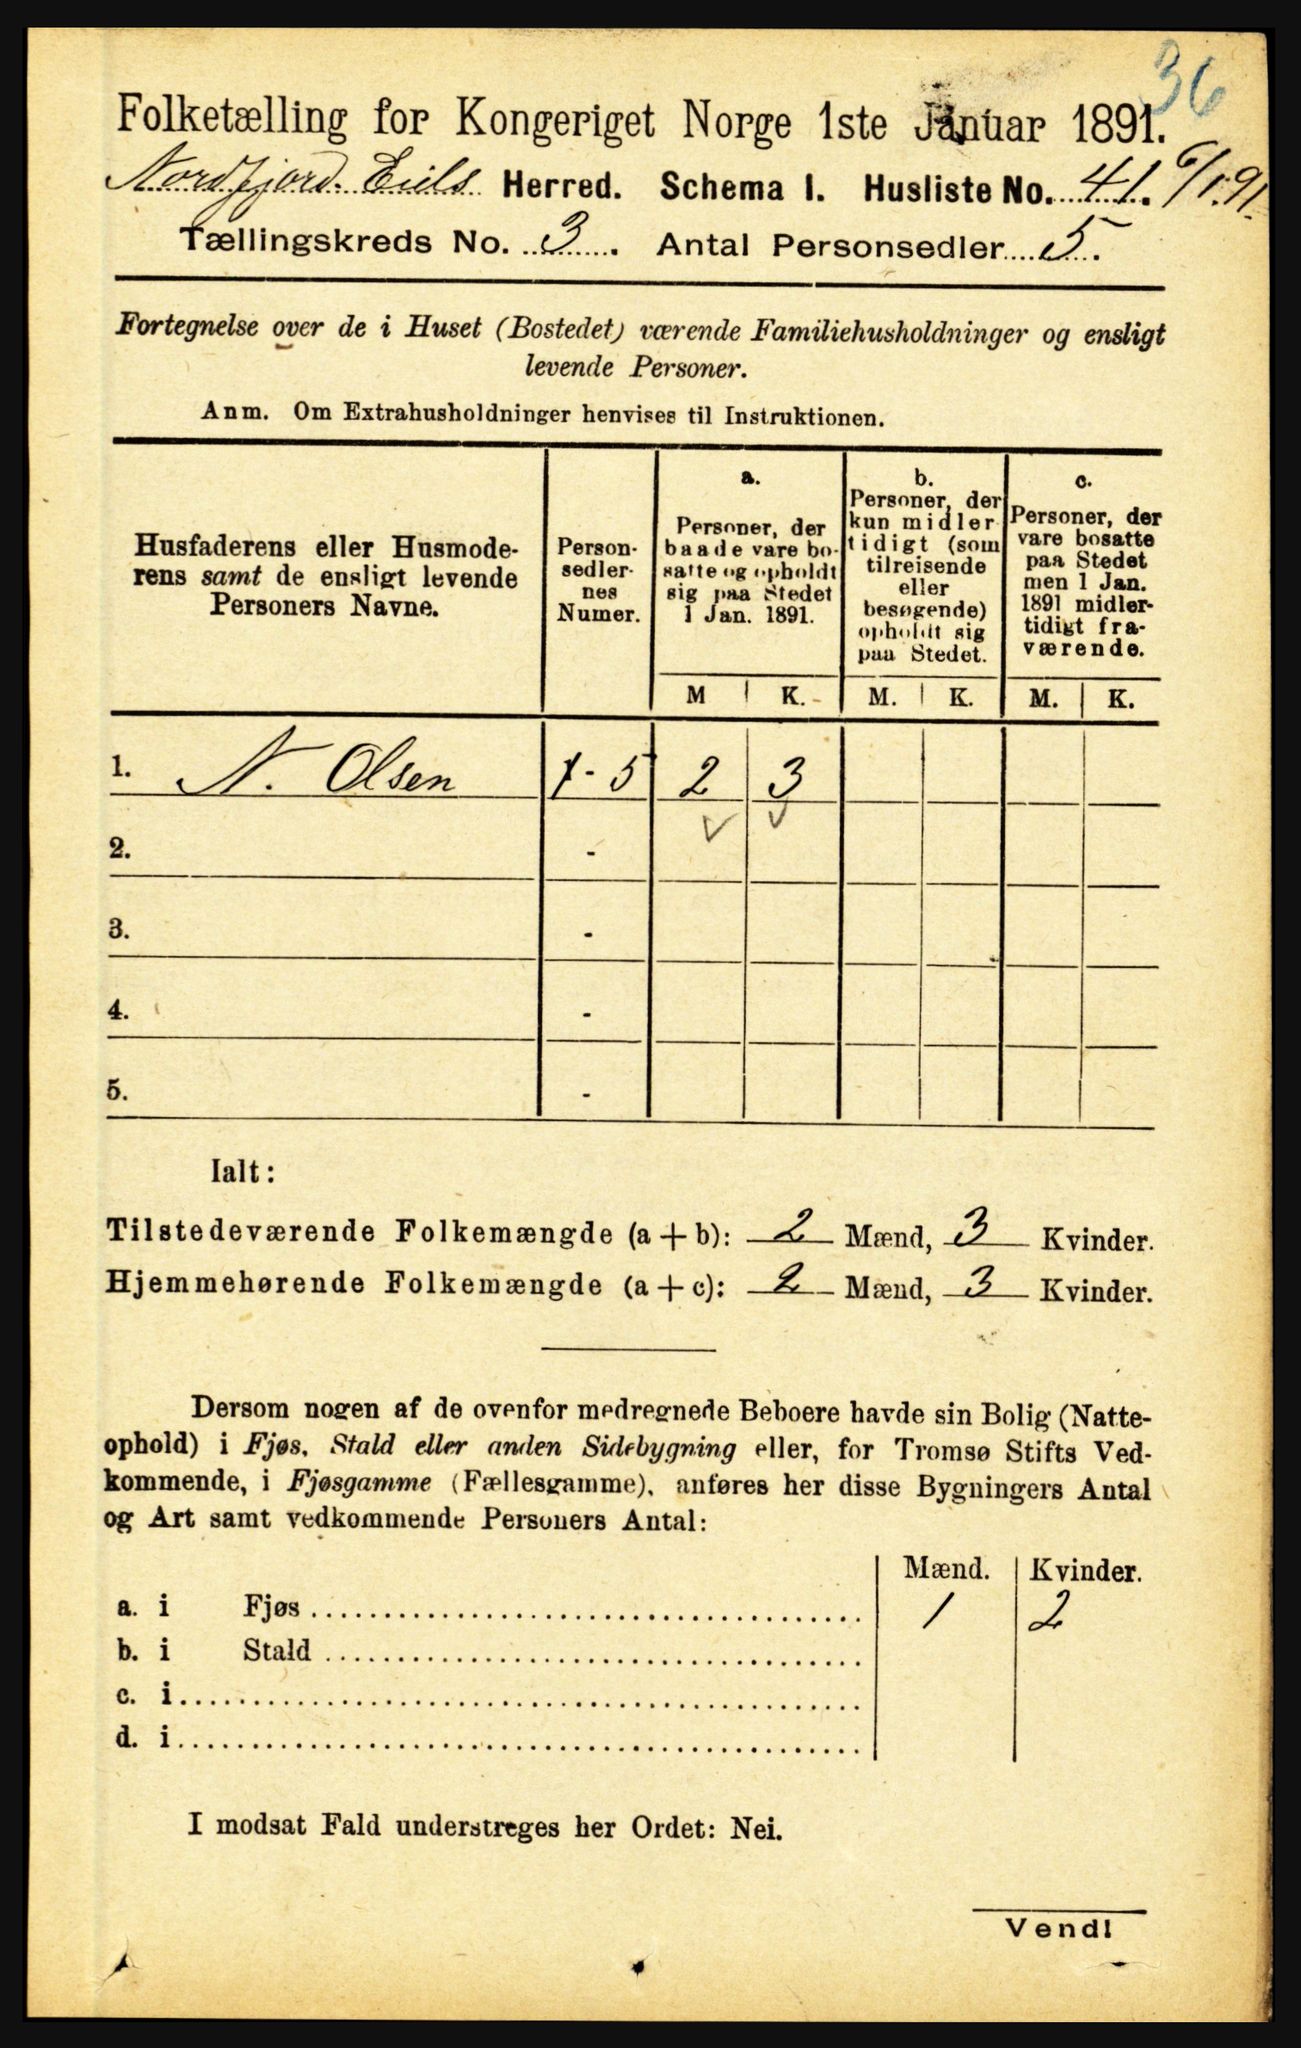 36
Folketælling for Kongeriget Norge 1ste Januar 1891.
Nordfjord. Eids Herred. Schema I. Husliste No. 41. 6/1.91.
Tællingskreds No. 3. Antal Personsedler 5.
Fortegnelse over de i Huset (Bostedet) værende Familiehusholdninger og ensligt
levende Personer.
Anm. Om Extrahusholdninger henvises til Instruktionen.
Husfaderens eller Husmode-
rens samt de ensligt levende
Personers Navne.
Person-
sedler-
nes
Numer.
a.
Personer, der
baade vare bo-
satte og opholdt
sig paa Stedet
1 Jan. 1891.
b.
Personer, der
kun midler
tidigt (som
tilreisende
eller
besøgende)
opholdt sig
paa Stedet.
c.
Personer, der
vare bosatte
paa Stedet
men 1 Jan.
1891 midler-
tidigt fra-
værende.
M K. M. K. M. K.
1. N. Olsen 1 - 5 2 3
2. -
3. -
4. -
5. -
Ialt:
Tilstedeværende Folkemængde (a + b): 2 Mænd, 3 Kvinder.
Hjemmehørende Folkemængde (a + c): 2 Mænd, 3 Kvinder.
Dersom nogen af de ovenfor medregnede Beboere havde sin Bolig (Natte-
ophold) i Fjøs, Stald eller anden Sidebygning eller, for Tromsø Stifts Ved-
kommende, i Fjøsgamme (Fællesgamme), anføres her disse Bygningers Antal
og Art samt vedkommende Personers Antal:
Mænd. Kvinder.
a. i Fjøs 1 2
b. i Stald
c. i
d. i
I modsat Fald understreges her Ordet: Nei.
Vend!